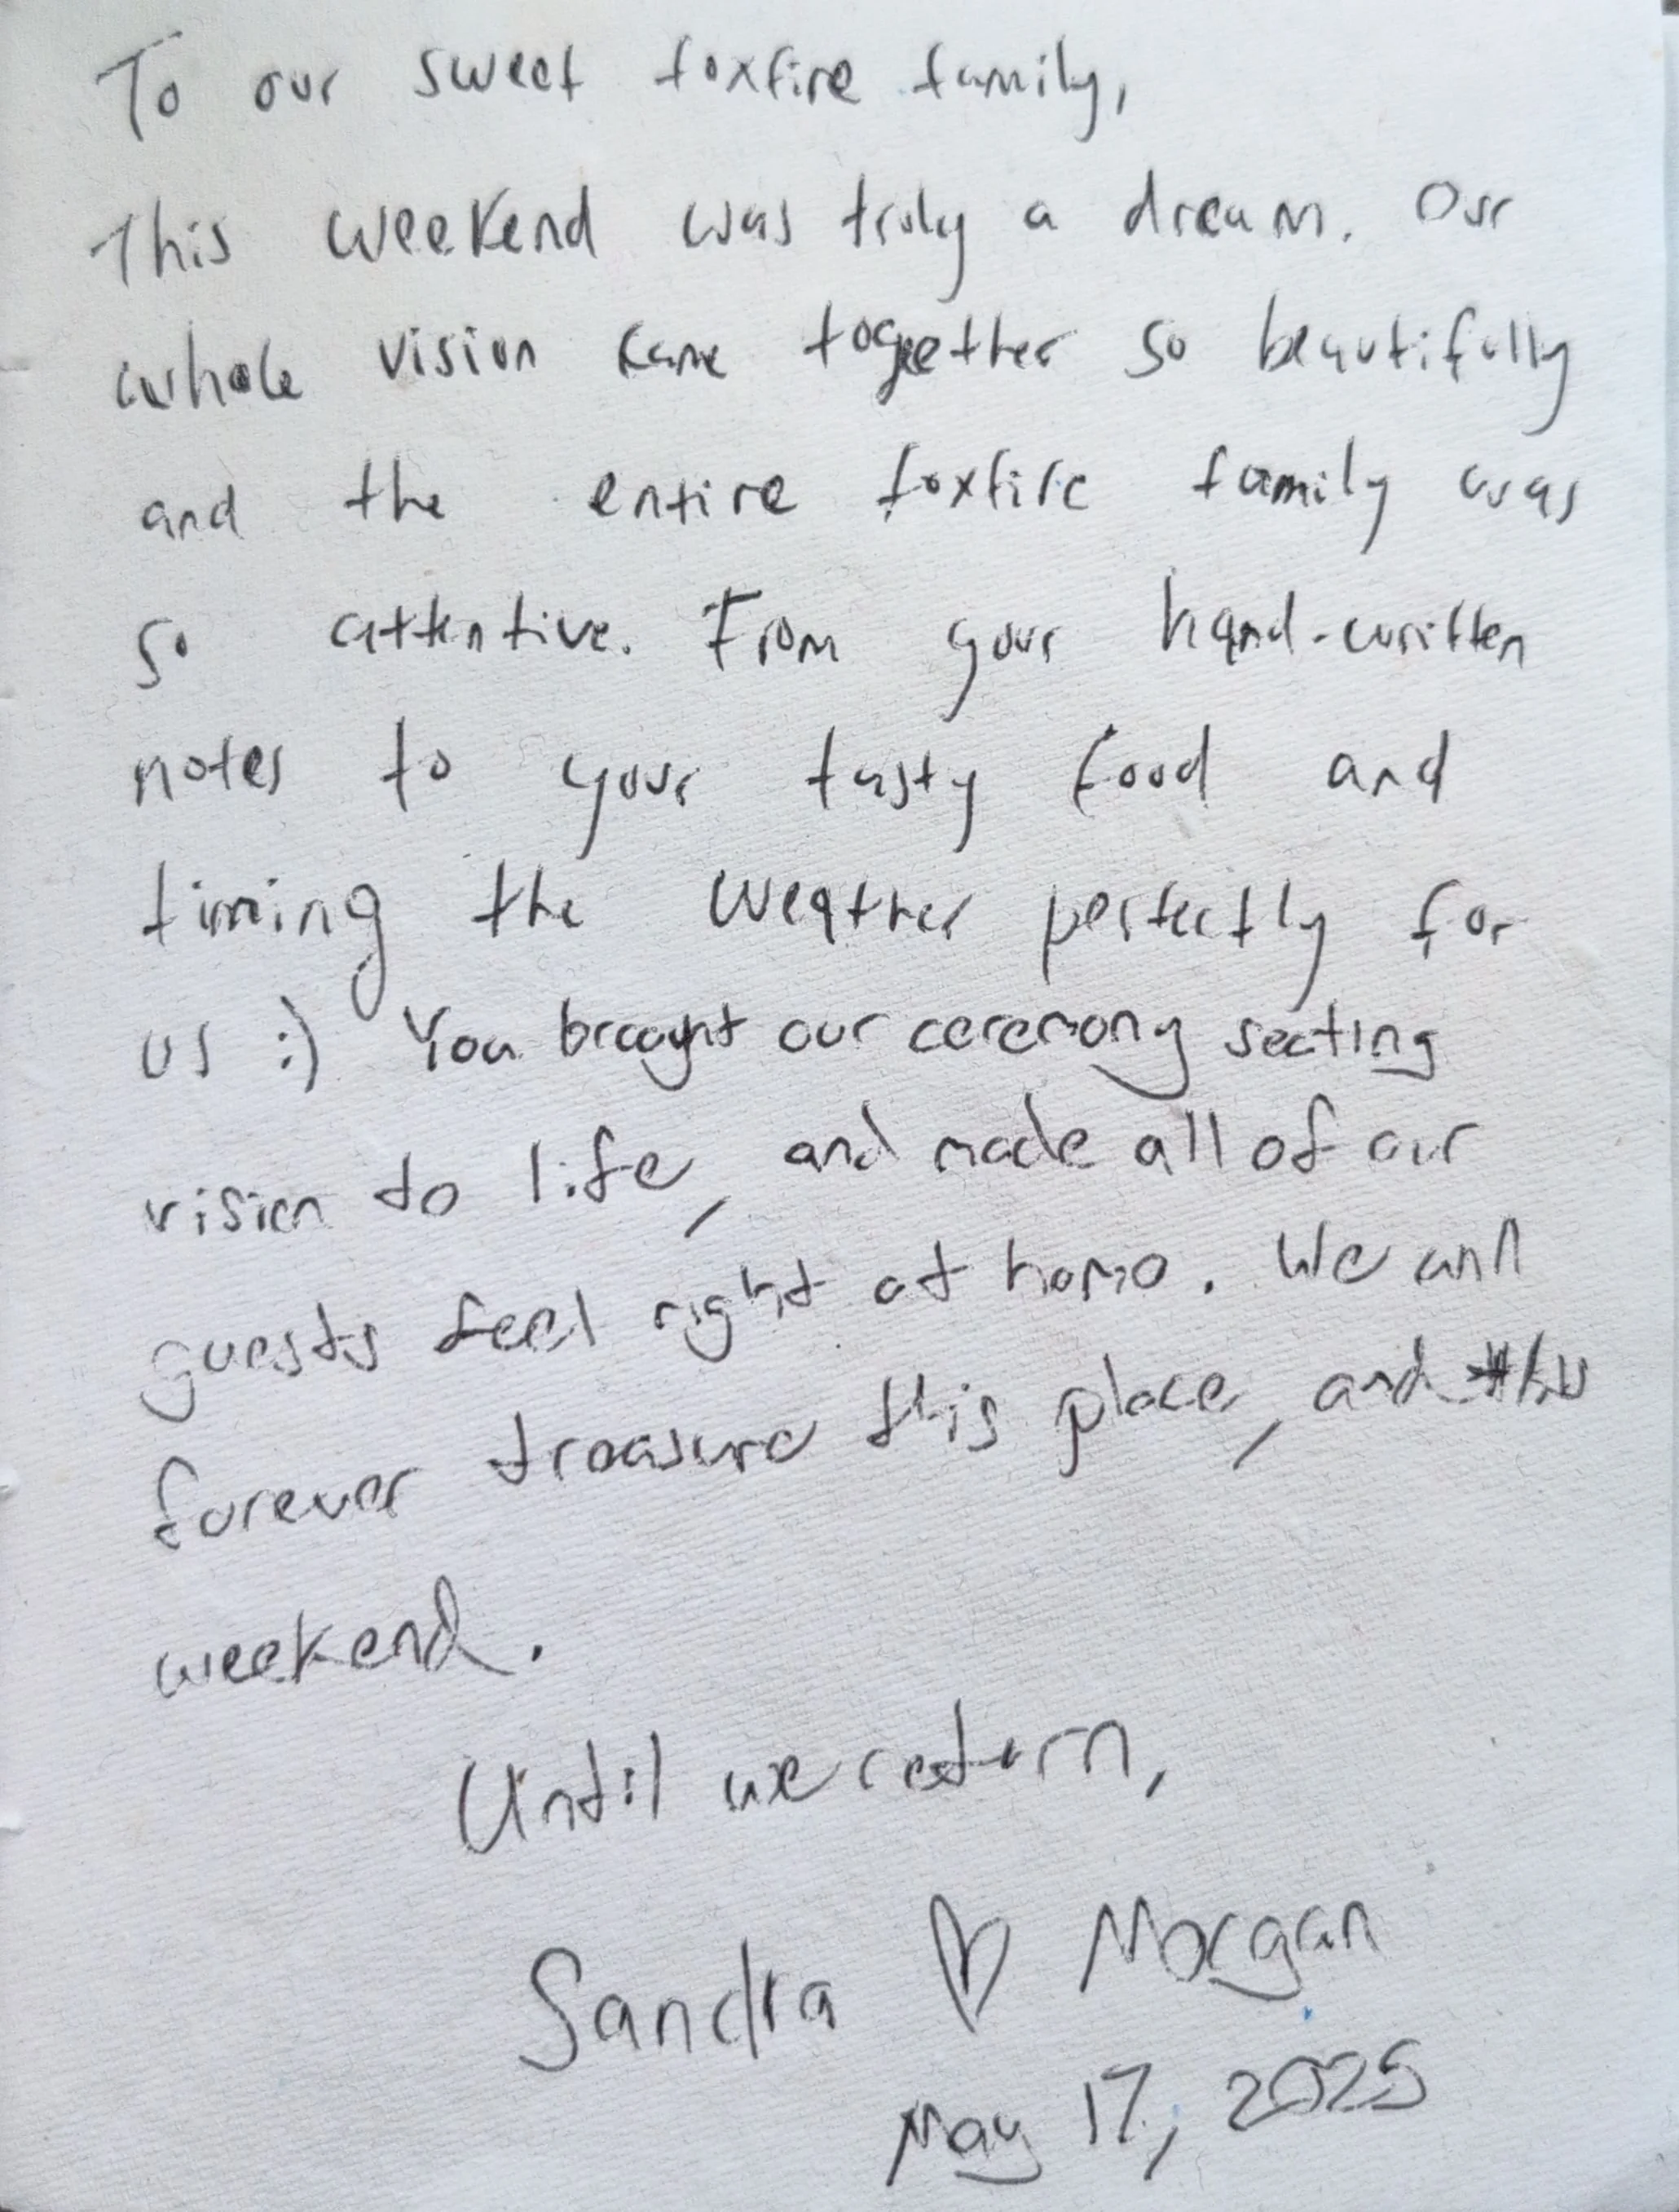 To our sweet foxfire family,
This weekend was truly a dream. Our
whole vision came together so beautifully
and the entire foxfire family was
so attentive. From your hand-written
notes to your tasty food and
timing the weather perfectly for
us :) You brought our ceremony seating
vision to life, and made all of our
guests feel right at home. We will
forever treasure this place, and this
weekend.
Until we return,
Sandra ♡ Morgan
May 17, 2025